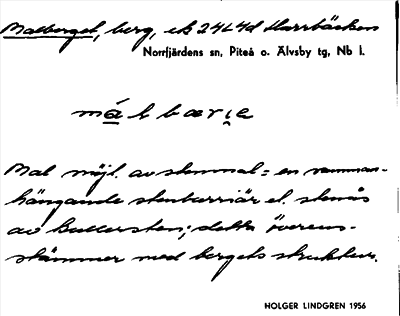 Malberget, berg, ek 24L4d Harrbäcken
Norrfjärdens sn, Piteå o. Älvsby tg, Nb l.
málbærie
Mal möjl. av stenmal = en samman-
hängande stenbarriär el. stenås
av bullersten; detta överens-
stämmer med bergets struktur.
HOLGER LINDGREN 1956